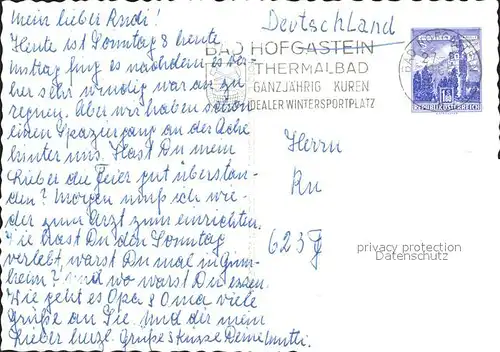 mein lieber Rudi!
Heute ist Sonntag & heute
mittag fing es nachdem es vor-
her sehr windig war an zu
regnen. Aber wir haben schon
einen Spaziergang an der Ache
hinter uns. Hast Du mein
Lieber die Feier gut überstan-
den? Morgen muß ich wie-
der zum Arzt zum einrichten.
Wie hast Du den Sonntag
verlebt, warst Du mal in Ginn-
heim? und wo warst Du essen.
Wie geht es Opa & Oma viele
Grüße an Sie. Und dir mein
Lieber herzl. Grüße & Küsse Deine Mutti.
Deutschland
BAD HOFGASTEIN
THERMALBAD
GANZJÄHRIG KUREN
IDEALER WINTERSPORTPLATZ
REPUBLIK ÖSTERREICH
Herrn
Ru
623
privacy protection
Datenschutz